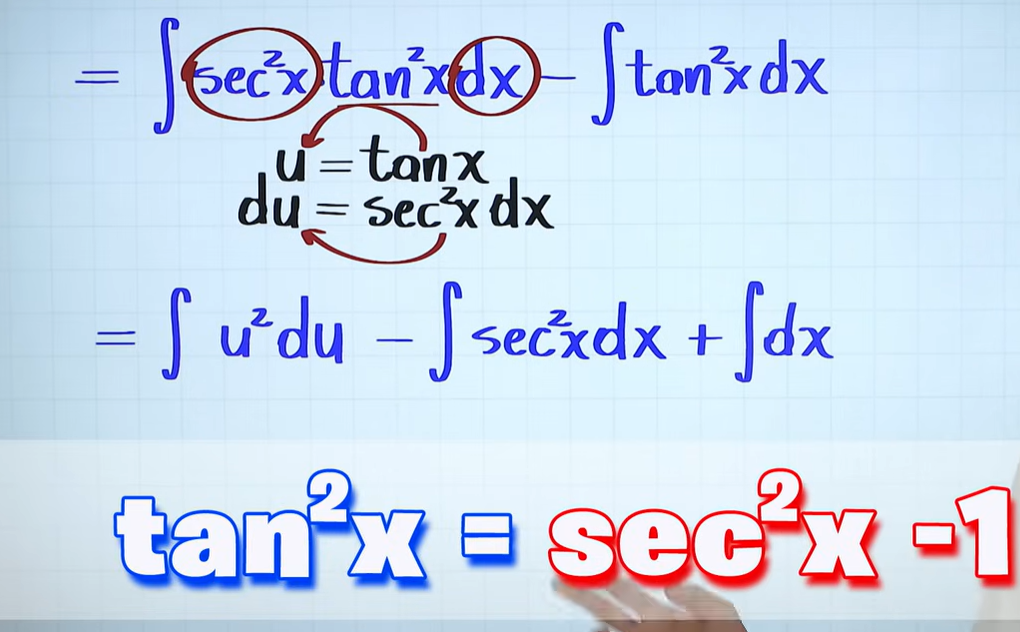 = ∫ sec²x tan²x dx – ∫ tan²x dx
u = tanx
du = sec²x dx
= ∫ u²du – ∫ sec²xdx + ∫ dx
tan²x = sec²x -1